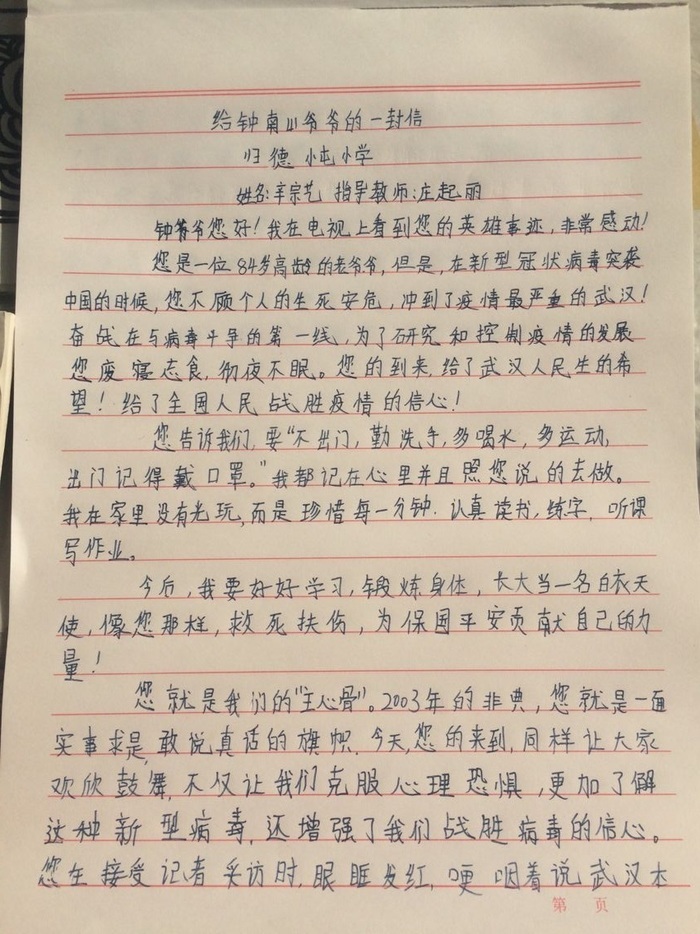 给钟南山爷爷的一封信
归德小屯小学
姓名:辛宗艺 指导教师:庄起丽
钟爷爷您好!我在电视上看到您的英雄事迹,非常感动!
您是一位84岁高龄的老爷爷,但是,在新型冠状病毒突袭
中国的时候,您不顾个人的生死安危,冲到了疫情最严重的武汉!
奋战在与病毒斗争的第一线,为了研究和控制疫情的发展
您废寝忘食,彻夜不眠。您的到来,给了武汉人民生的希
望!给了全国人民战胜疫情的信心!
您告诉我们,要“不出门,勤洗手,多喝水,多运动,
出门记得戴口罩。”我都记在心里并且照您说的去做。
我在家里没有光玩,而是珍惜每一分钟.认真读书,练字,听课
写作业。
今后,我要好好学习,锻炼身体,长大当一名白衣天
使,像您那样,救死扶伤,为保国平安贡献自己的力
量!
您就是我们的“主心骨”。2003年的非典,您就是一面
实事求是,敢说真话的旗帜.今天,您的来到,同样让大家
欢欣鼓舞,不仅让我们克服心理恐惧,更加了解
这种新型病毒,还增强了我们战胜病毒的信心。
您在接受记者采访时,眼眶发红,哽咽着说武汉本
第 页